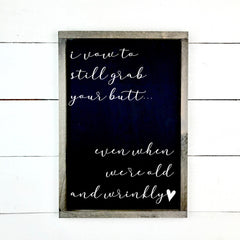 i vow to
still grab
your butt...
even when
we're old
and wrinkly